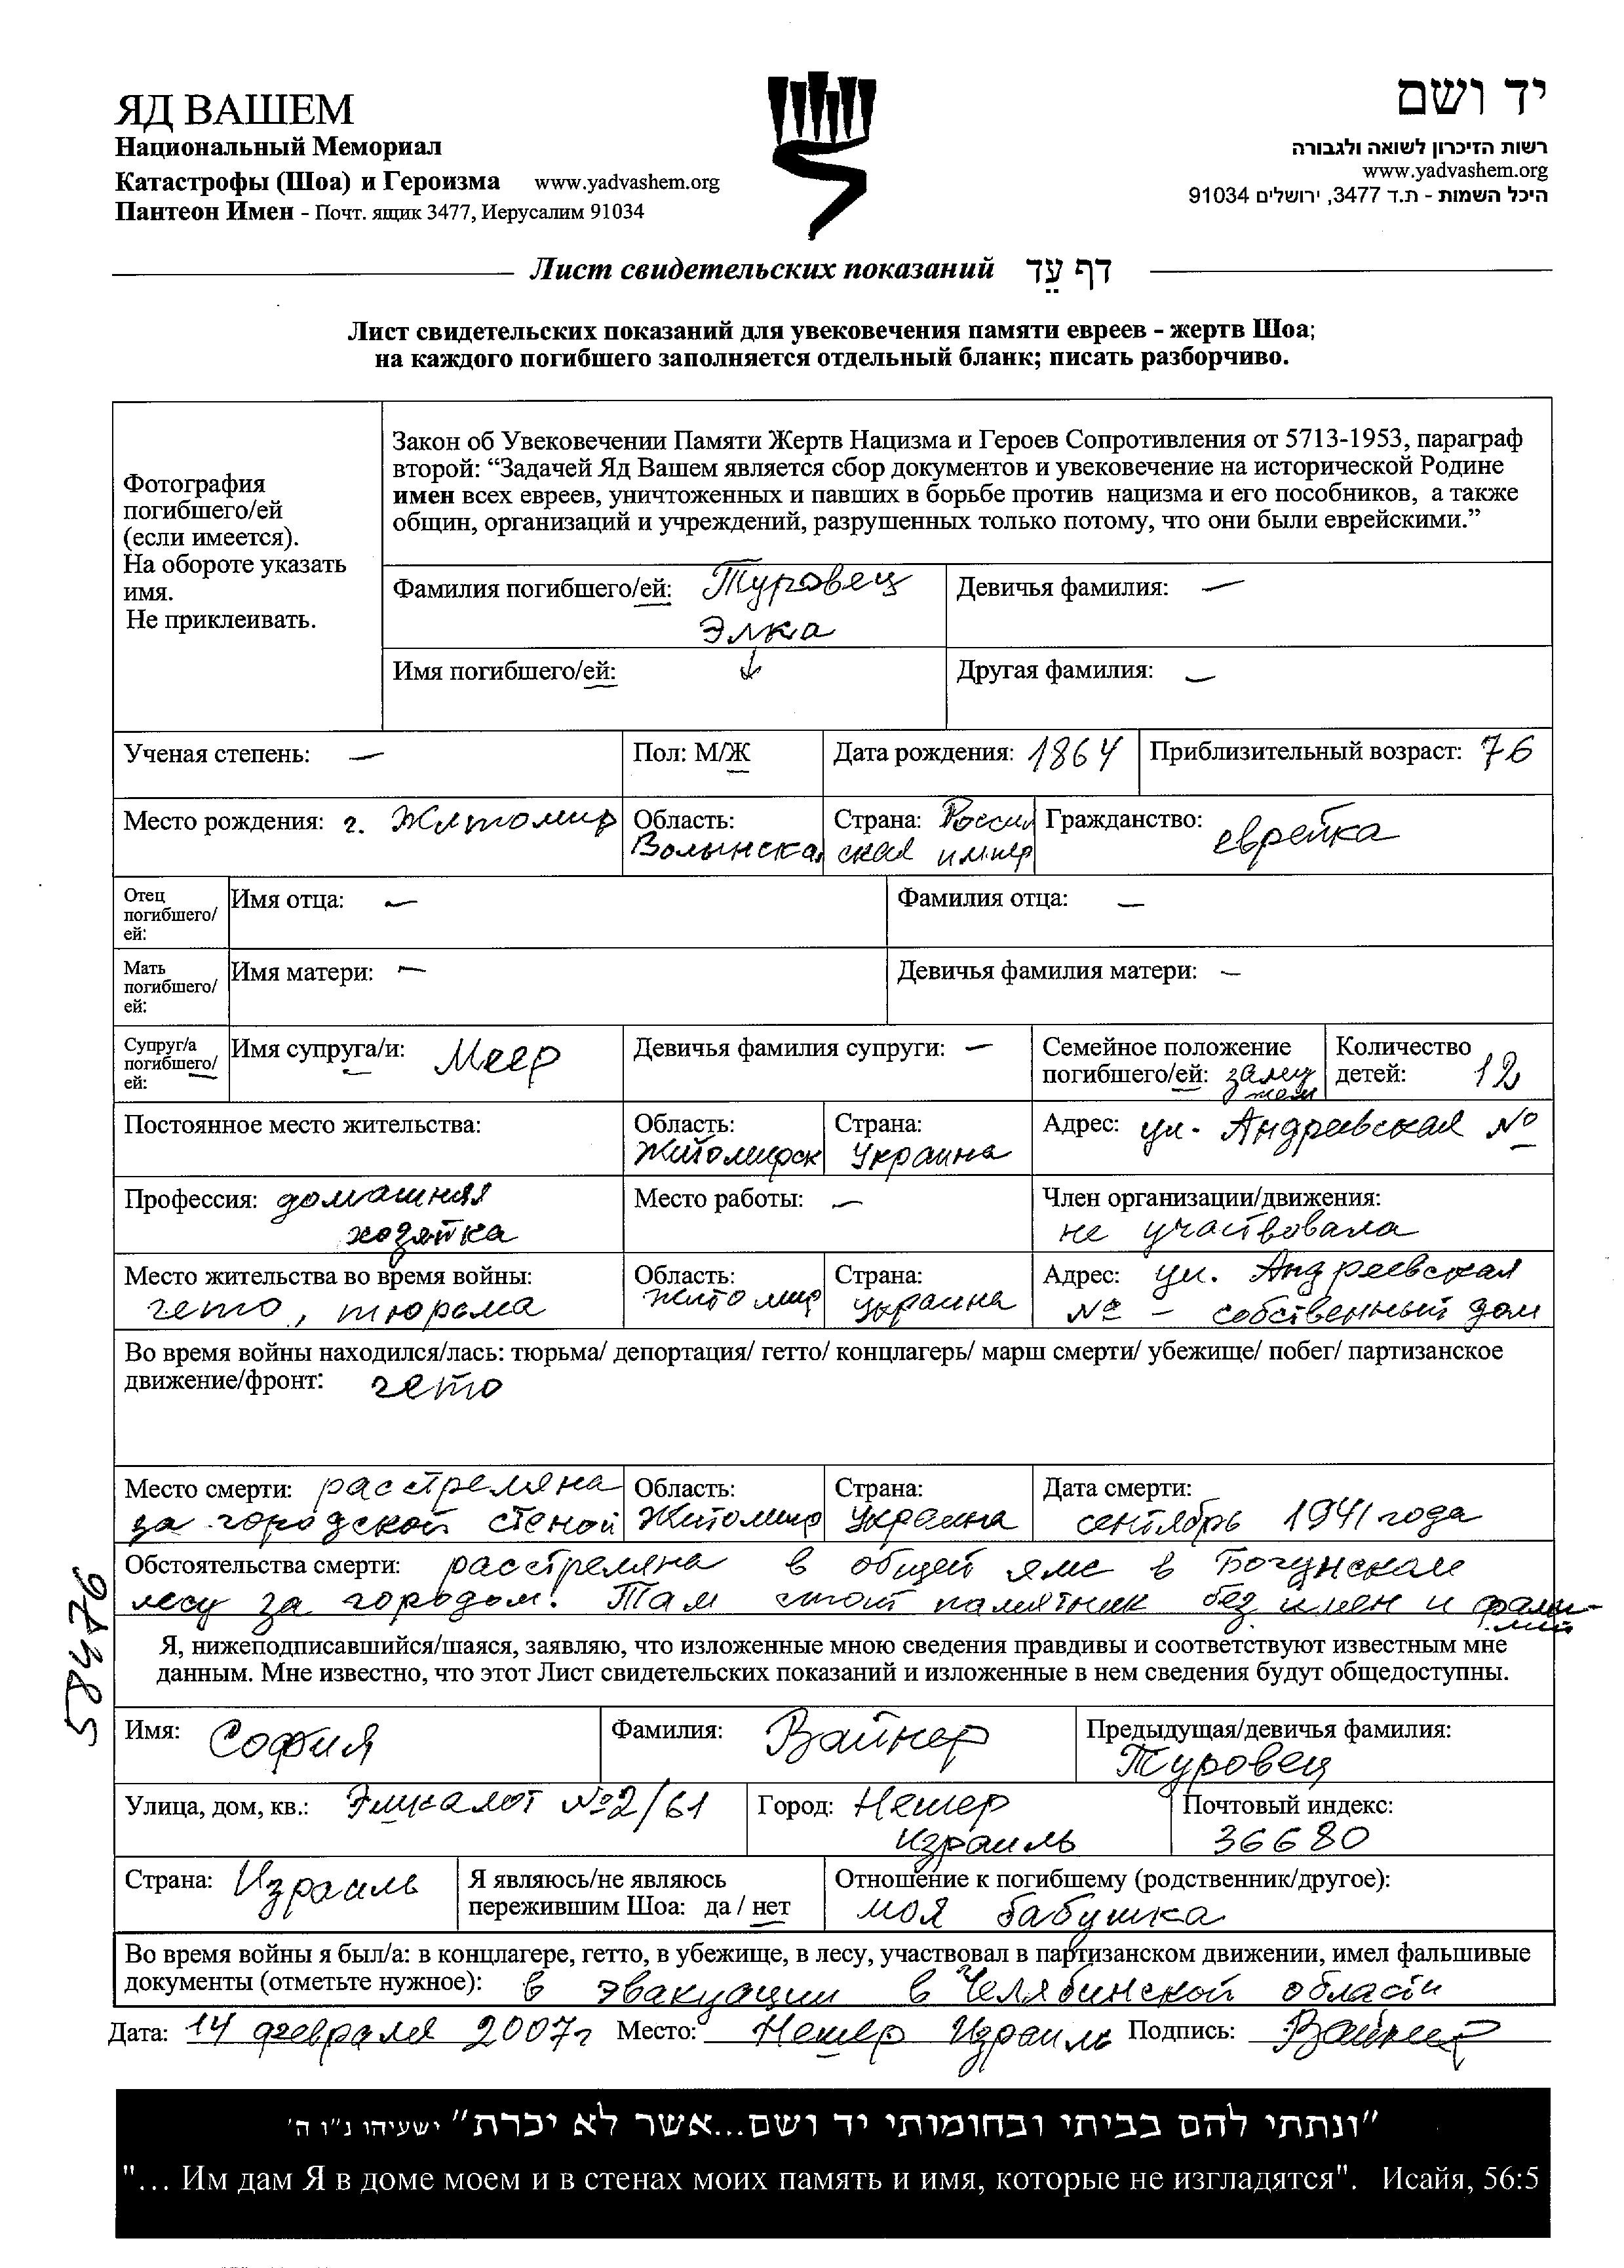 ЯД ВАШЕМ
Национальный Мемориал
Катастрофы (Шоа) и Героизма www.yadvashem.org
Пантеон Имен - Почт. ящик 3477, Иерусалим 91034
יד ושם
רשות הזיכרון לשואה ולגבורה
www.yadvashem.org
היכל השמות - ת.ד 3477, ירושלים 91034
Лист свидетельских показаний דף עֵד
Лист свидетельских показаний для увековечения памяти евреев - жертв Шоа;
на каждого погибшего заполняется отдельный бланк; писать разборчиво.
Фотография
погибшего/ей
(если имеется).
На обороте указать
имя.
Не приклеивать.
Закон об Увековечении Памяти Жертв Нацизма и Героев Сопротивления от 5713-1953, параграф
второй: “Задачей Яд Вашем является сбор документов и увековечение на исторической Родине
имен всех евреев, уничтоженных и павших в борьбе против нацизма и его пособников, а также
общин, организаций и учреждений, разрушенных только потому, что они были еврейскими.”
Фамилия погибшего/ей: Туровец
Элка
Девичья фамилия: —
Имя погибшего/ей: ↓
Другая фамилия: —
Ученая степень: — Пол: М/Ж Дата рождения: 1864 Приблизительный возраст: 76
Место рождения: г. Житомир
Область:
Волынская
Страна: Россий
ская импер
Гражданство: еврейка
Отец
погибшего/
ей:
Имя отца: — Фамилия отца: —
Мать
погибшего/
ей:
Имя матери: — Девичья фамилия матери: —
Супруг/а
погибшего/
ей:
Имя супруга/и: Меер
Девичья фамилия супруги: —
Семейное положение
погибшего/ей: заму
жем
Количество
детей: 12
Постоянное место жительства:
Область:
Житомирск
Страна:
Украина
Адрес: ул. Андреевская №
—
Профессия: домашняя
хозяйка
Место работы: —
Член организации/движения:
не участвовала
Место жительства во время войны:
гето, тюрьма
Область:
Житомир
Страна:
Украина
Адрес: ул. Андреевская
№ — собственный дом
Во время войны находился/лась: тюрьма/ депортация/ гетто/ концлагерь/ марш смерти/ убежище/ побег/ партизанское
движение/фронт: гето
Место смерти: расстреляна
за городской стеной
Область:
Житомир
Страна:
Украина
Дата смерти:
сентябрь 1941 года
Обстоятельства смерти: расстреляна в общей яме в Богунском
лесу за городом. Там стоит памятник без имен и фами-
лий
58476
Я, нижеподписавшийся/шаяся, заявляю, что изложенные мною сведения правдивы и соответствуют известным мне
данным. Мне известно, что этот Лист свидетельских показаний и изложенные в нем сведения будут общедоступны.
Имя: София
Фамилия: Вайнер
Предыдущая/девичья фамилия:
Туровец
Улица, дом, кв.: №2/61
Город: Нешер
Израиль
Почтовый индекс:
36680
Страна: Израиль
Я являюсь/не являюсь
пережившим Шоа: да / нет
Отношение к погибшему (родственник/другое):
моя бабушка
Во время войны я был/а: в концлагере, гетто, в убежище, в лесу, участвовал в партизанском движении, имел фальшивые
документы (отметьте нужное): в эвакуации в Челябинской области
Дата: 14 февраля 2007г Место: Нешер Израиль Подпись: Вайнер
"ונתתי להם בביתי ובחומותי יד ושם...אשר לא יכרת" ישעיהו נ"ו ה'
"... Им дам Я в доме моем и в стенах моих память и имя, которые не изгладятся". Исайя, 56:5